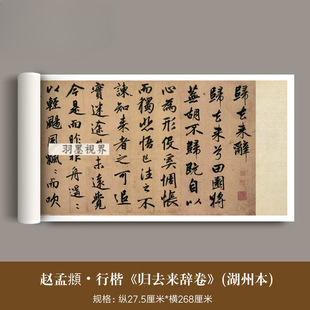 歸去來辭
歸去來兮田園將
蕪胡不歸既自以
心為形役奚惆悵
而獨悲悟已往之不
諫知来者之可追
實迷途未遠覺
今是而昨非舟遥
以輕颺風飄々而吹
羽墨視界
赵孟頫·行楷《归去来辞卷》(湖州本)
规格：纵27.5厘米*横268厘米